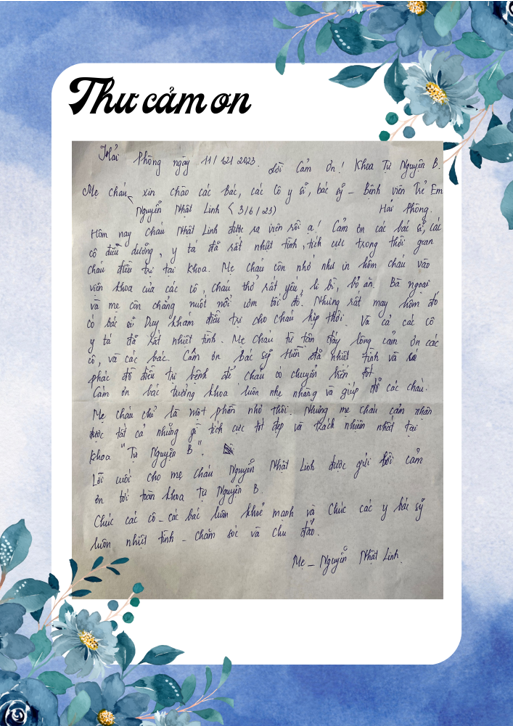 Thư cảm ơn
Hải Phòng ngày 11/12/2023. Lời Cảm Ơn! Khoa Tự Nguyện B.
Mẹ cháu xin chào các bác, các cô y sĩ, bác sỹ - Bệnh viện Trẻ Em
Nguyễn Nhất Linh (3/6/23) Hải Phòng.
Hôm nay cháu Nhất Linh được ra viện rồi ạ! Cảm ơn các bác sĩ, các
cô điều dưỡng, y tá đã rất nhiệt tình, tích cực trong thời gian
cháu điều trị tại khoa. Mẹ cháu còn nhớ như in hôm cháu vào
viện khoa của các cô, cháu thở rất yếu, li bì, bỏ ăn. Bà ngoại
và mẹ còn chẳng nuốt nổi cơm tối đó. Nhưng rất may hôm đó
có bác sĩ Duy khám điều trị cho cháu kịp thời. Và cả các cô
y tá đã rất nhiệt tình. Mẹ cháu từ tận đáy lòng cảm ơn các
cô, và các bác. Cảm ơn bác sỹ đã nhiệt tình và
phác đồ điều trị bệnh để cháu có chuyển biến tốt.
Cảm ơn bác trưởng khoa luôn nhẹ nhàng và giúp đỡ các cháu.
Mẹ cháu chỉ là một phần nhỏ thôi. Nhưng mẹ cháu cảm nhận
được tất cả những gì tích cực tốt đẹp và trách nhiệm nhất tại
khoa "Tự Nguyện B".
Lời cuối cho mẹ cháu Nguyễn Nhất Linh được gửi lời cảm
ơn tới toàn khoa Tự Nguyện B.
Chúc các cô - các bác luôn khoẻ mạnh và chúc các y bác sỹ
luôn nhiệt tình - chăm sóc và chu đáo.
Mẹ - Nguyễn Nhất Linh